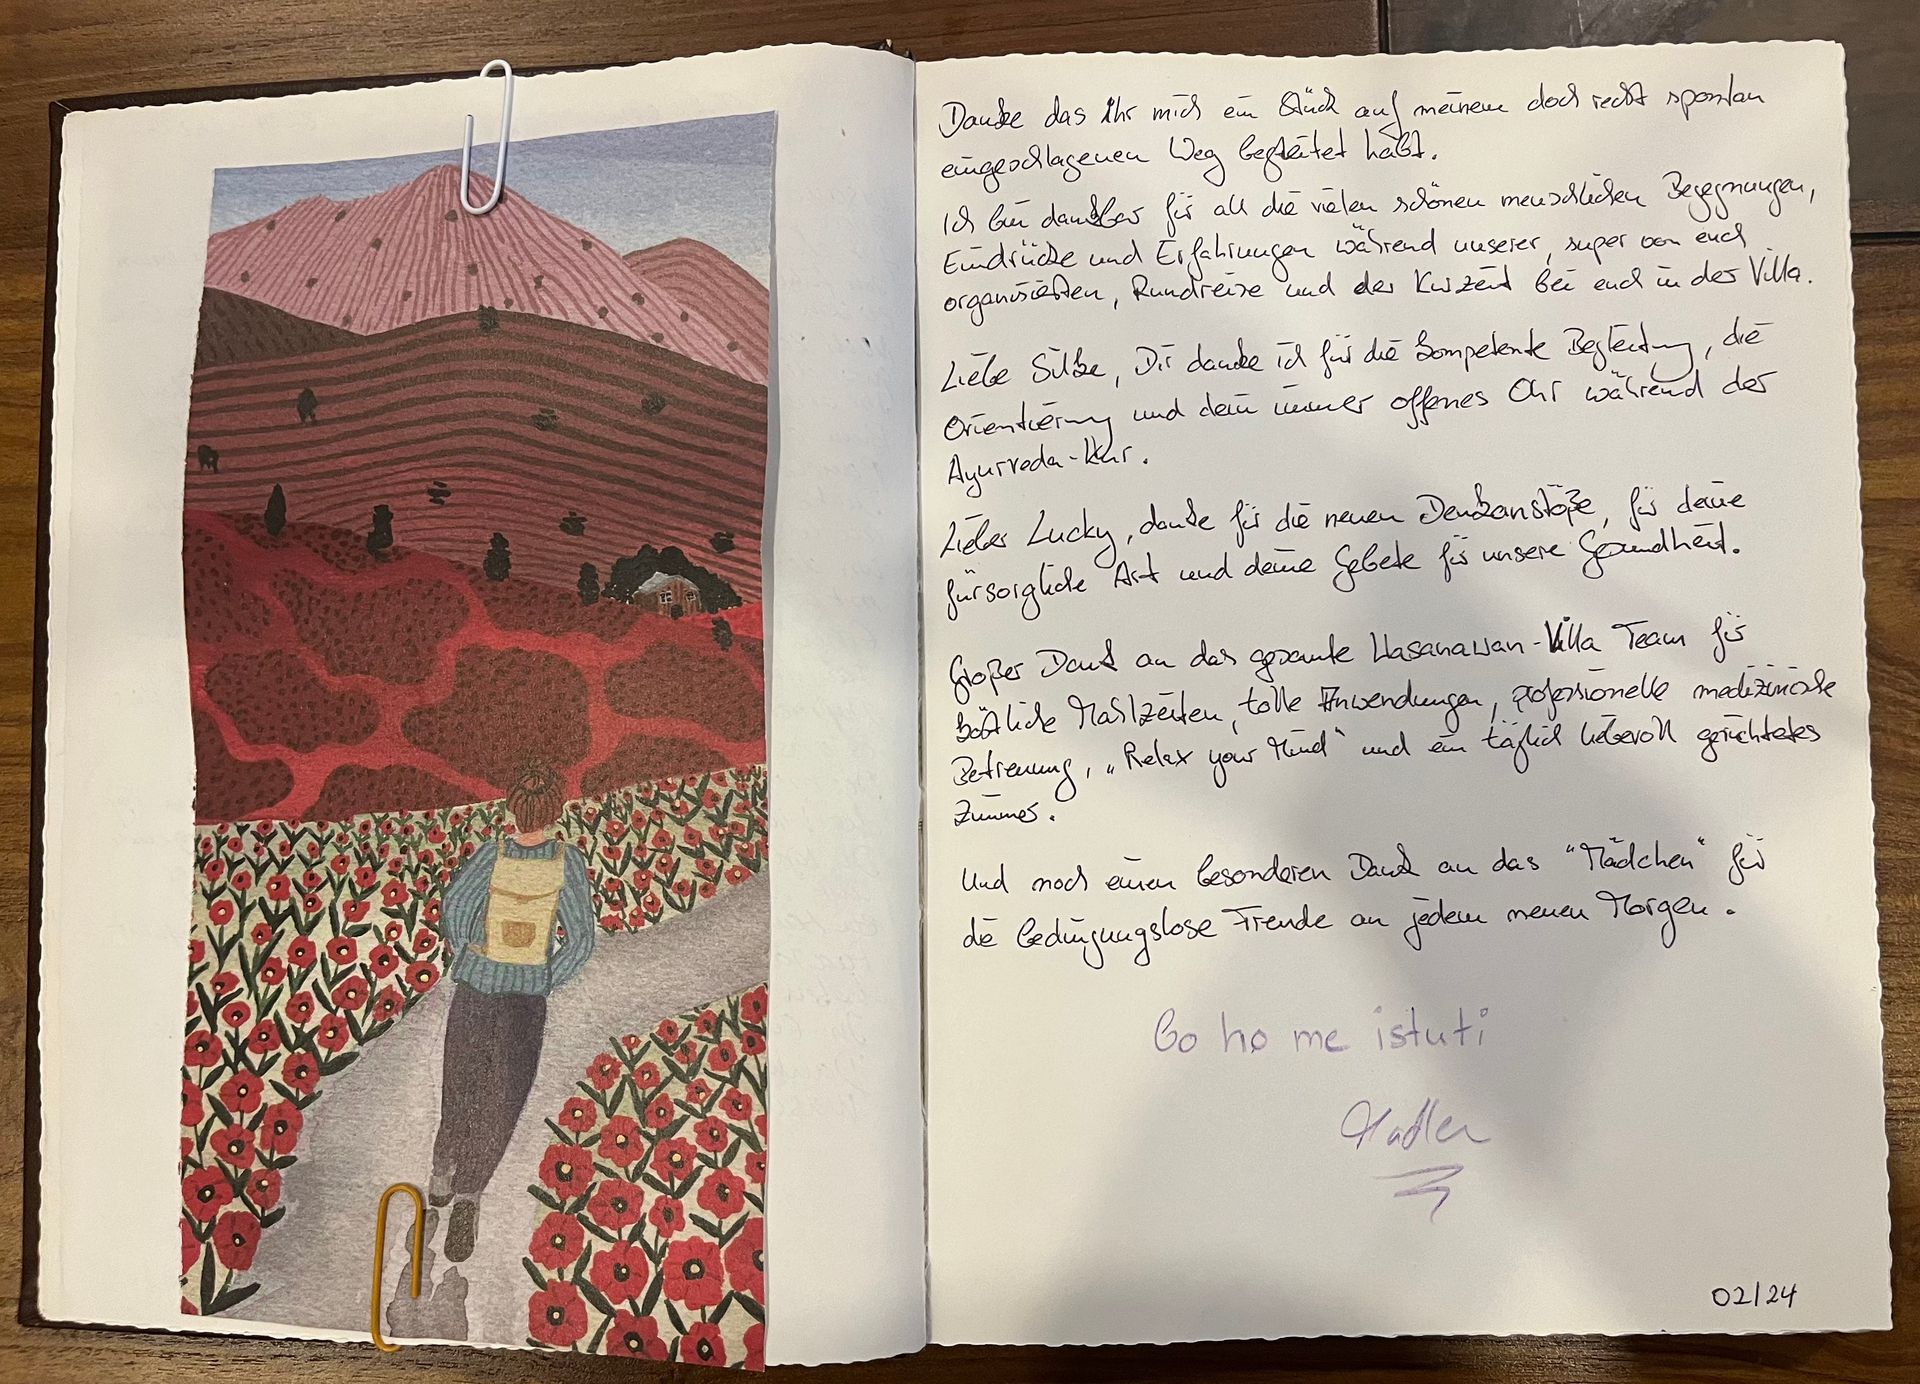 Danke das Ihr mich ein Stück auf meinem doch recht spontan
eingeschlagenen Weg begleitet habt.
Ich bin dankbar für all die vielen schönen menschlichen Begegnungen,
Eindrücke und Erfahrungen während unserer, super von euch
organisierten, Rundreise und der Kurzeit bei euch in der Villa.
Liebe Silke, Dir danke ich für die kompetente Begleitung, die
Orientierung und dein immer offenes Ohr während der
Ayurveda-Kur.
Lieber Lucky, danke für die neuen Denkanstöße, für deine
fürsorgliche Art und deine Gebete für unsere Gesundheit.
Großer Dank an das gesamte Wasanawan-Villa Team für
köstliche Mahlzeiten, tolle Anwendungen, professionelle medizinische
Betreuung, „Relax your Mind“ und ein täglich liebevoll gerichtetes
Zimmer.
Und noch einen besonderen Dank an das "Mädchen" für
die bedingungslose Freude an jedem neuen Morgen.
Bo ho me istuti
02/24